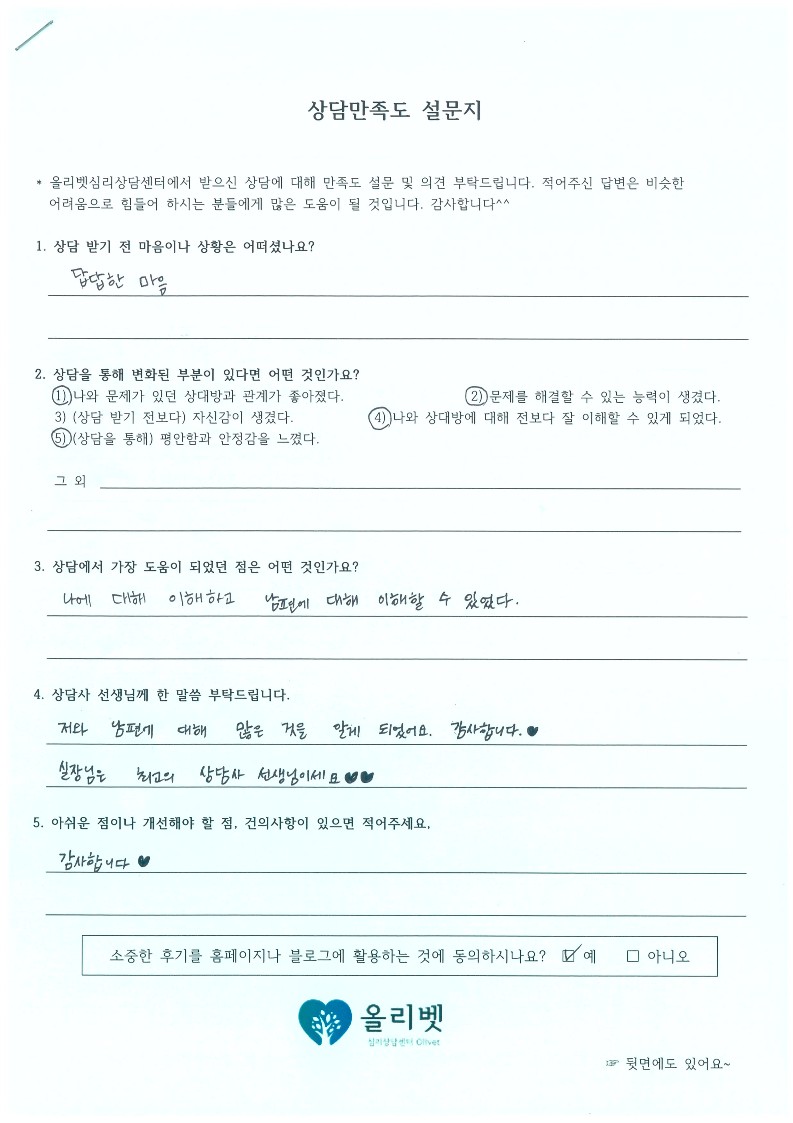 상담만족도 설문지
* 올리벳심리상담센터에서 받으신 상담에 대해 만족도 설문 및 의견 부탁드립니다. 적어주신 답변은 비슷한
어려움으로 힘들어 하시는 분들에게 많은 도움이 될 것입니다. 감사합니다^^
1. 상담 받기 전 마음이나 상황은 어떠셨나요?
답답한 마음
2. 상담을 통해 변화된 부분이 있다면 어떤 것인가요?
1) 나와 문제가 있던 상대방과 관계가 좋아졌다. 2) 문제를 해결할 수 있는 능력이 생겼다.
3) (상담 받기 전보다) 자신감이 생겼다. 4) 나와 상대방에 대해 전보다 잘 이해할 수 있게 되었다.
5) (상담을 통해) 평안함과 안정감을 느꼈다.
그 외
3. 상담에서 가장 도움이 되었던 점은 어떤 것인가요?
나에 대해 이해하고 남편에 대해 이해할 수 있었다.
4. 상담사 선생님께 한 말씀 부탁드립니다.
저와 남편에 대해 많은 것을 알게 되었어요. 감사합니다.♥
실장님은 최고의 상담사 선생님이세요♥♥
5. 아쉬운 점이나 개선해야 할 점, 건의사항이 있으면 적어주세요.
감사합니다 ♥
소중한 후기를 홈페이지나 블로그에 활용하는 것에 동의하시나요? ☑ 예 □ 아니오
올리벳
심리상담센터 Olivet
☞ 뒷면에도 있어요~